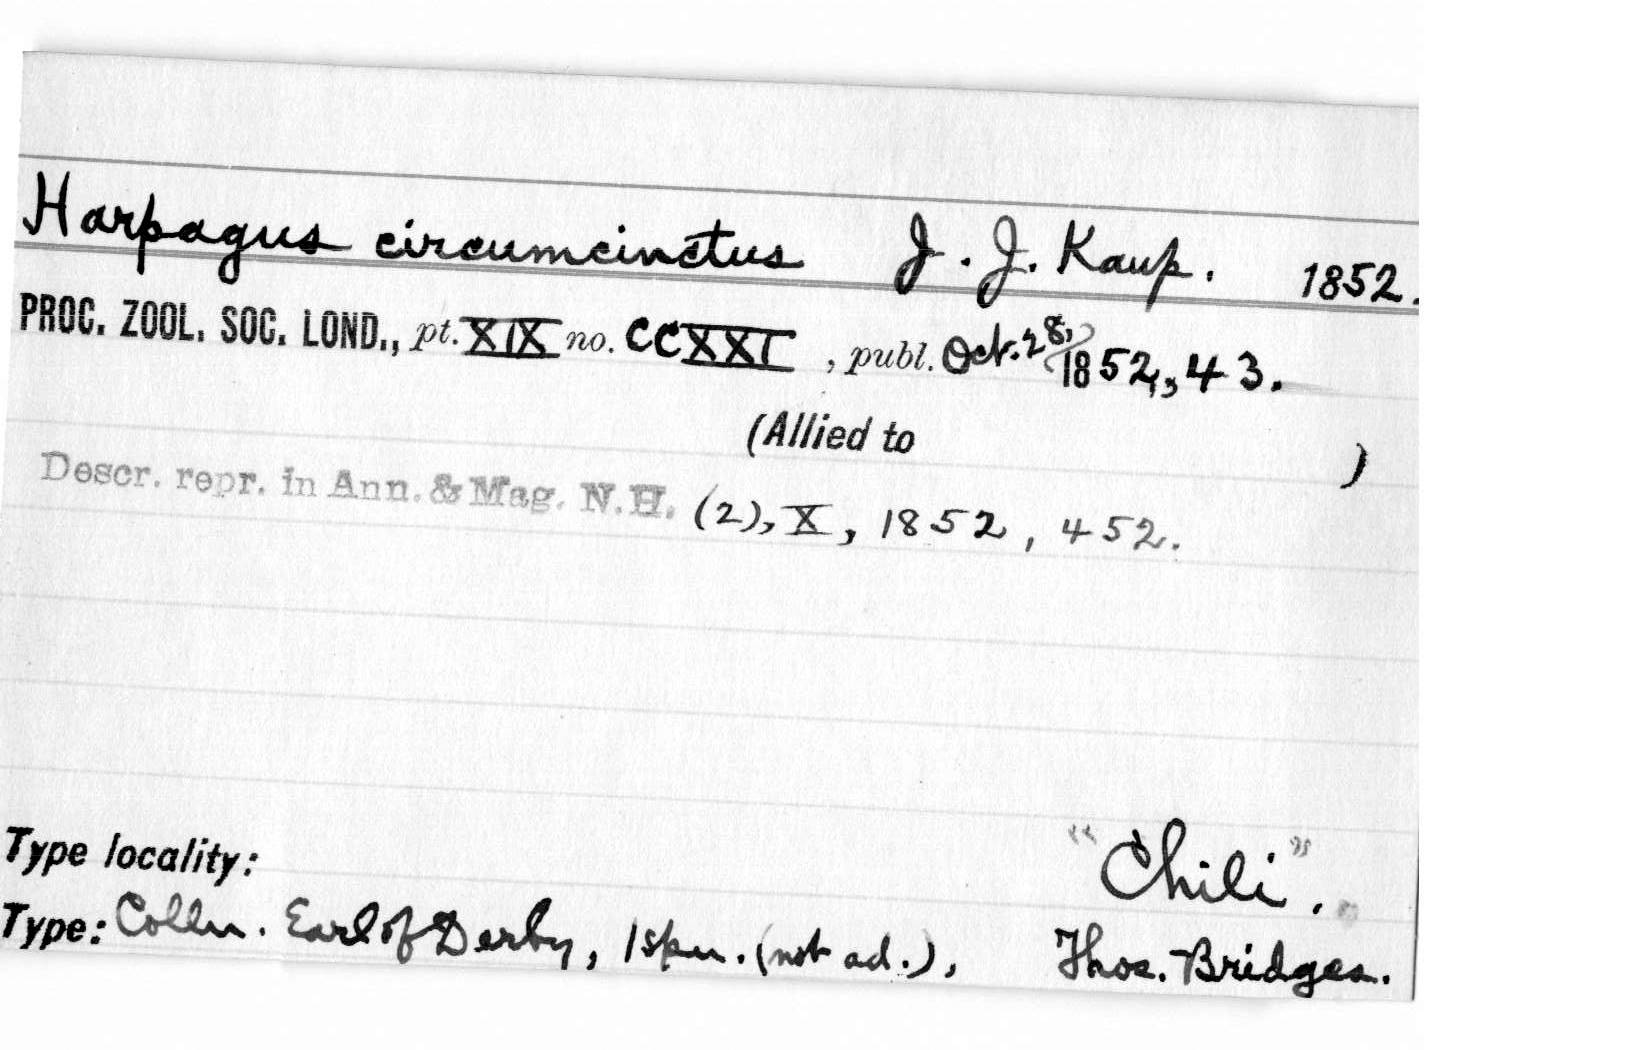 Harpagus circumcinctus J. J. Kaup. 1852.
PROC. ZOOL. SOC. LOND., pt. XIX no. CCXXI, publ. Oct. 28, 1852, 43.
(Allied to )
Descr. repr. in Ann. & Mag. N.H. (2), X, 1852, 452.
Type locality: "Chili".
Type: Colln. Earl of Derby, 1 spm. (not ad.), Thos. Bridges.